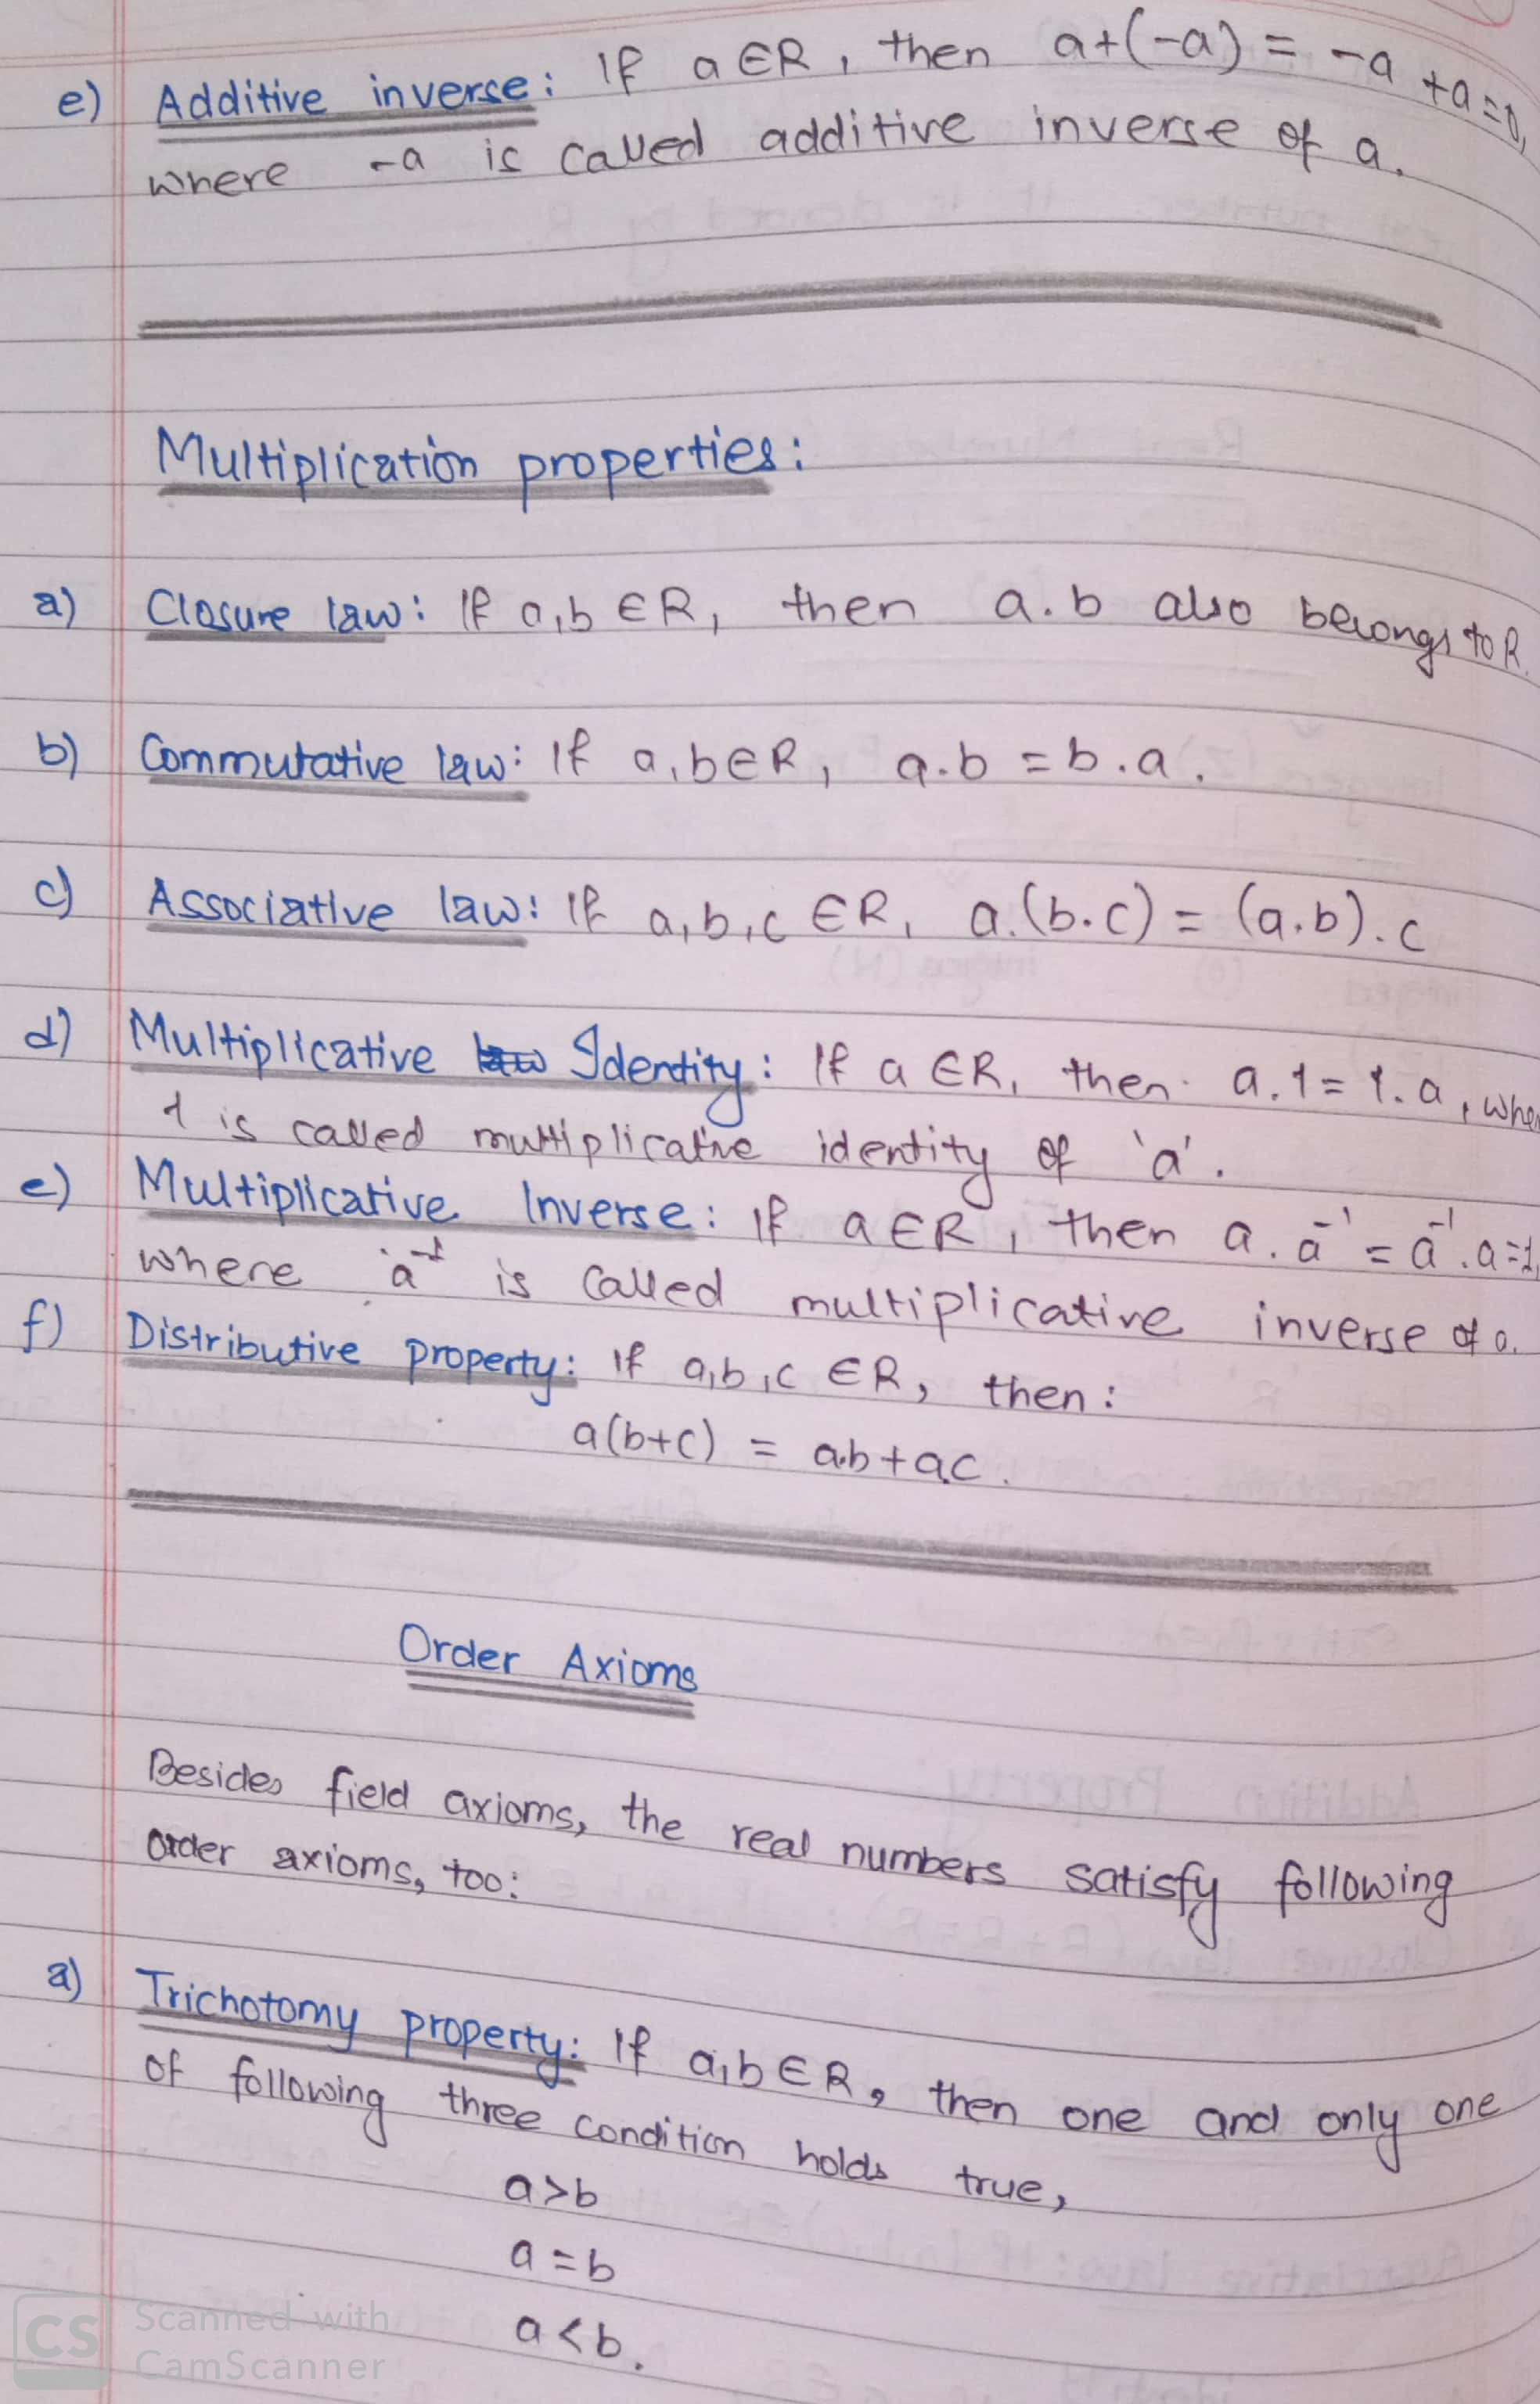 e) Additive inverse: If a ∈ R, then a+(-a) = -a +a=0,
where -a is called additive inverse of a.
Multiplication properties:
a) Closure law: If a,b ∈ R, then a.b also belongs to R.
b) Commutative law: If a,b ∈ R, a.b = b.a.
c) Associative law: If a,b,c ∈ R, a.(b.c) = (a.b).c
d) Multiplicative law Identity: If a ∈ R, then a.1 = 1.a,
1 is called multiplicative identity of 'a'.
e) Multiplicative Inverse: If a ∈ R, then a.a⁻¹ = a⁻¹.a=1,
where a⁻¹ is called multiplicative inverse of a.
f) Distributive property: If a,b,c ∈ R, then:
a(b+c) = a.b + a.c.
Order Axioms
Besides field axioms, the real numbers satisfy following
order axioms, too:
a) Trichotomy property: If a,b ∈ R, then one and only one
of following three condition holds true,
a>b
a=b
a<b.
CS Scanned with
CamScanner